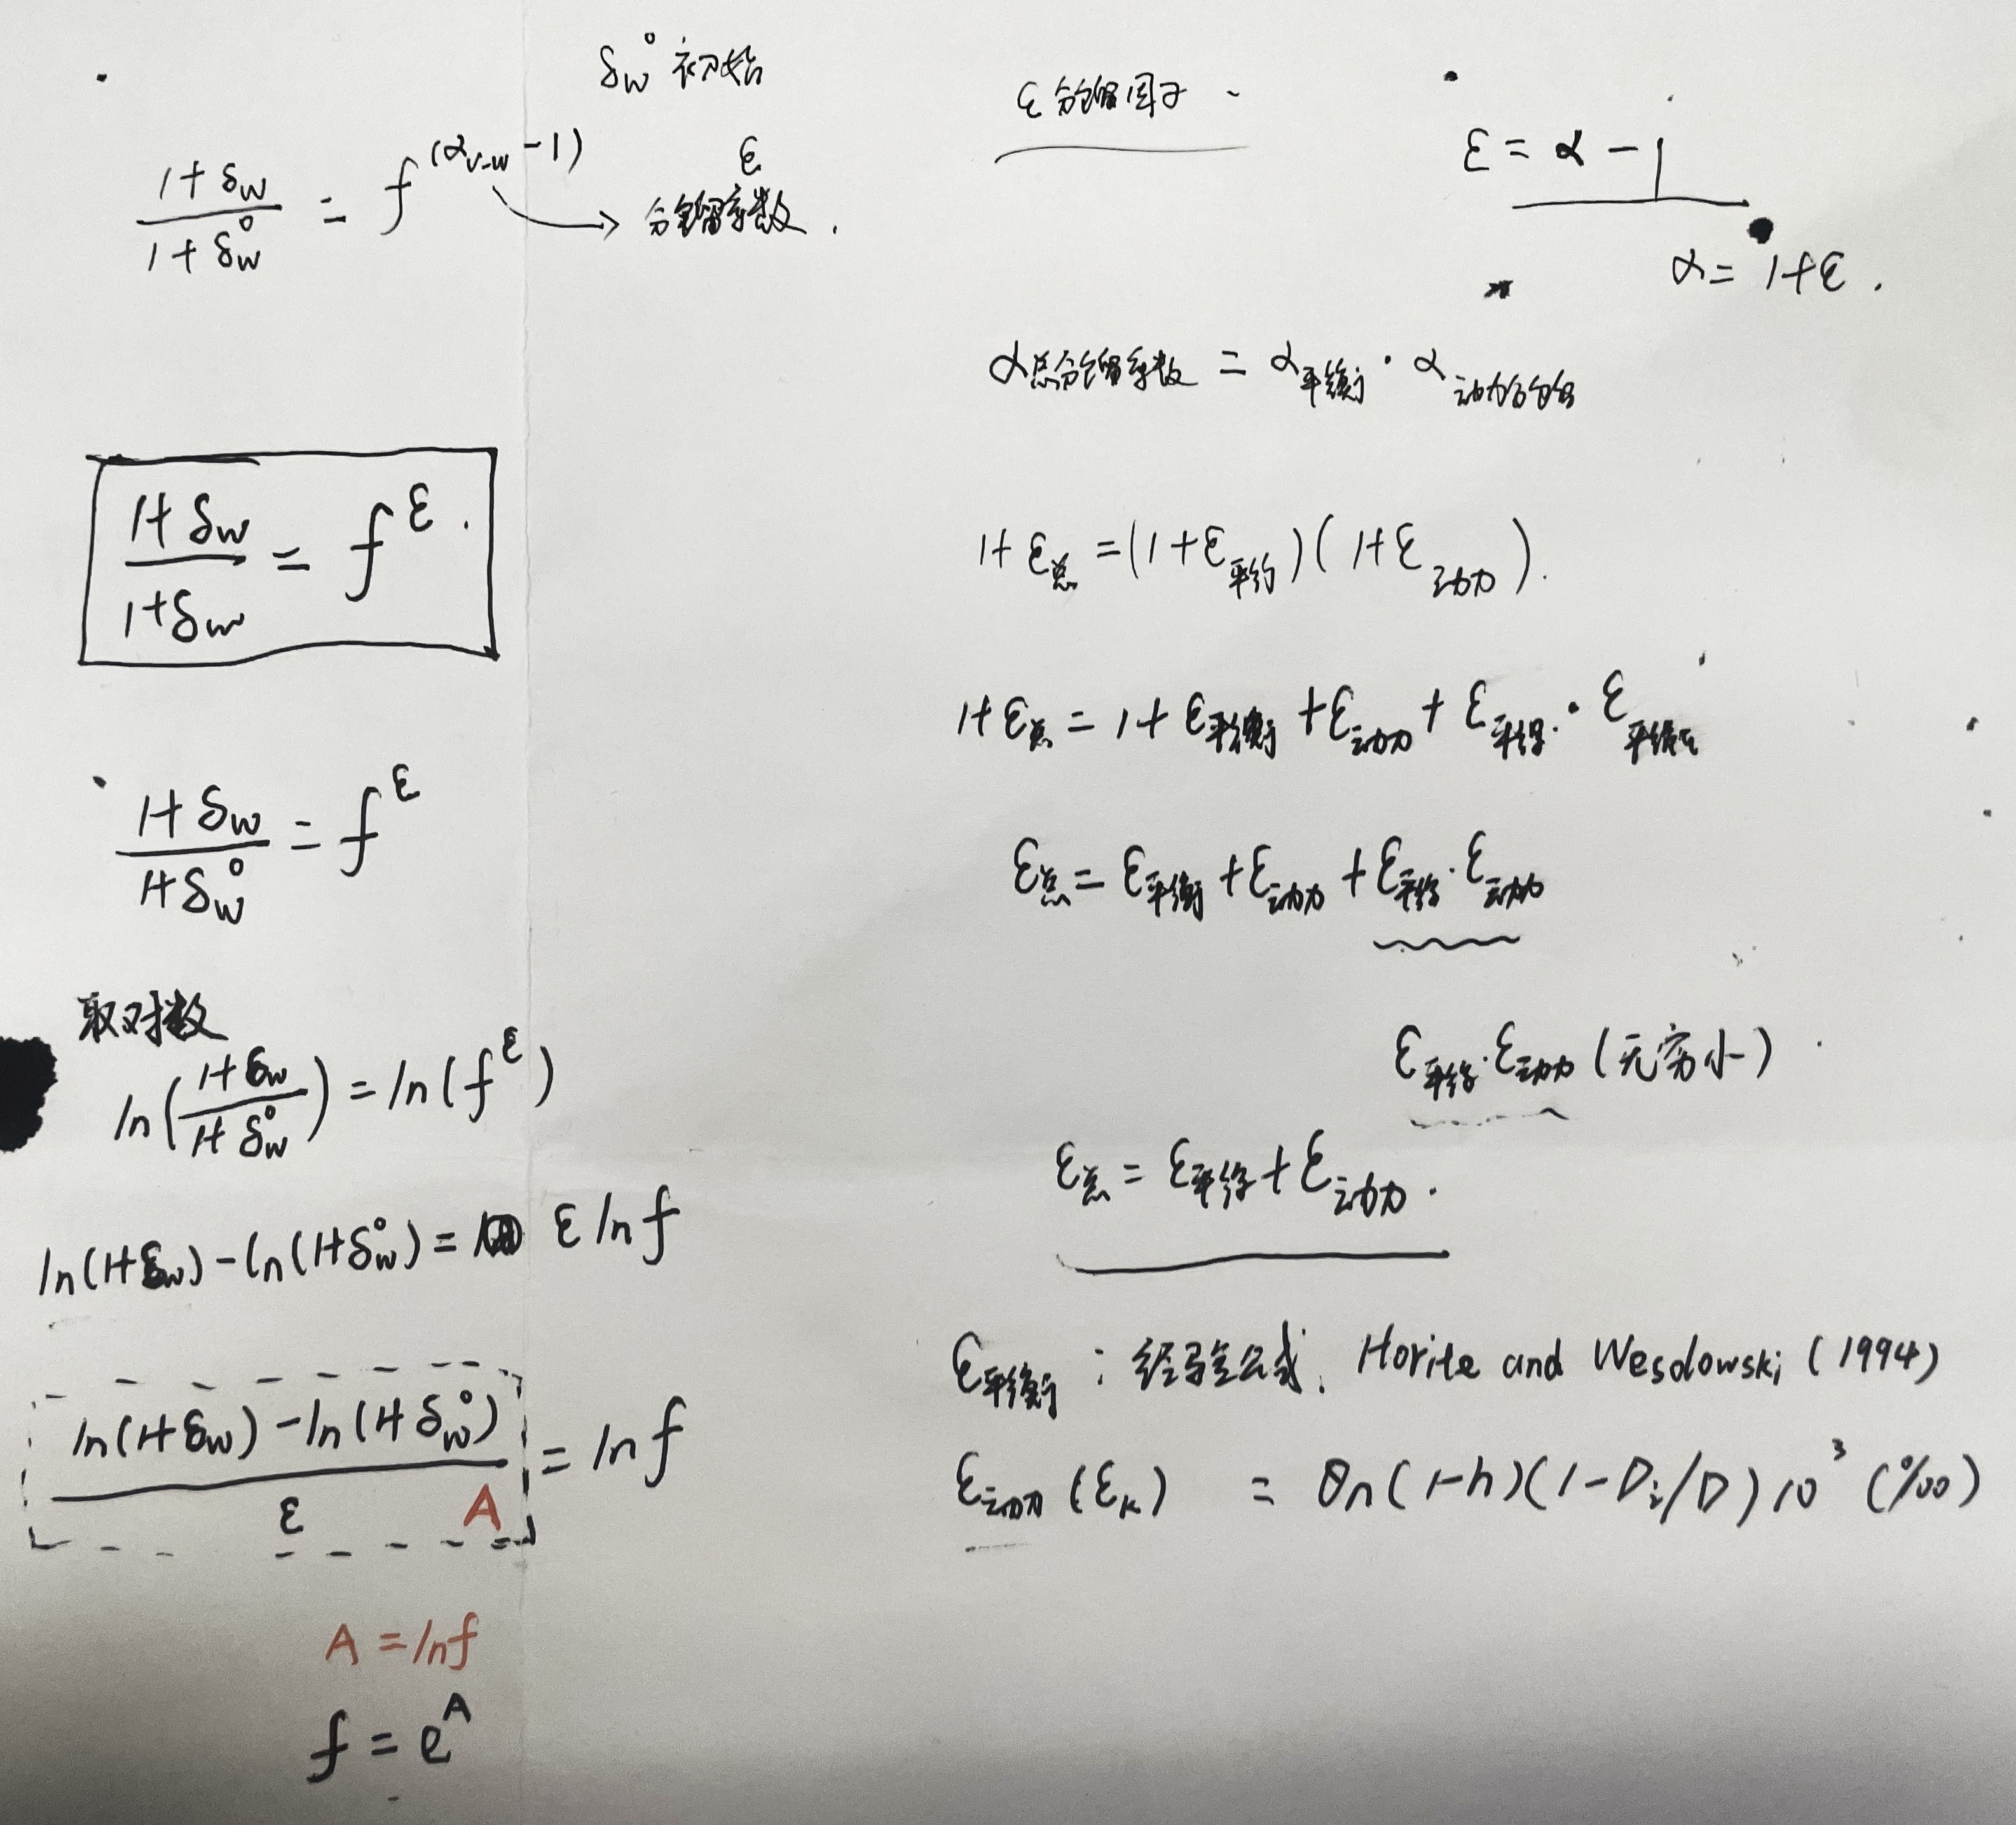 δw° 初始
(1+δw)/(1+δw°) = f^(αv-w -1) → ε 分馏系数.
(1+δw)/(1+δw) = f^ε.
(1+δw)/(1+δw°) = f^ε
取对数
ln((1+δw)/(1+δw°)) = ln(f^ε)
ln(1+δw)-ln(1+δw°) = ε ln f
(ln(1+δw)-ln(1+δw°))/ε = ln f
A
A = ln f
f = e^A
ε 分馏因子
ε = α - 1
α = 1+ε.
α总分馏系数 = α平衡 · α动力
1+ε总 = (1+ε平衡)(1+ε动力).
1+ε总 = 1+ε平衡+ε动力+ε平衡·ε平衡
ε总 = ε平衡+ε动力+ε平衡·ε动力
ε平衡·ε动力 (无穷小)
ε总 = ε平衡+ε动力.
ε平衡: 经验公式, Horite and Wesolowski (1994)
ε动力 (εk) = θn(1-h)(1-Di/D)10³ (‰)